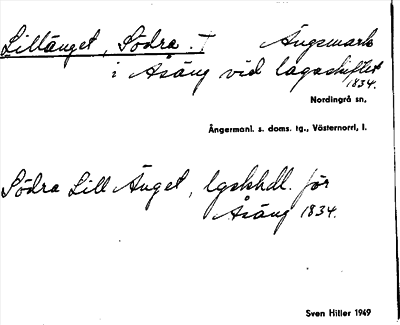 Lillänget, Södra. I Ängsmark
i Åsäng vid lagaskiftet
1834.
Nordingrå sn,
Ångermanl. s. doms. tg., Västernorrl, l.
Södra Lill Änget, lgskhdl. för
Åsäng 1834.
Sven Hiller 1949